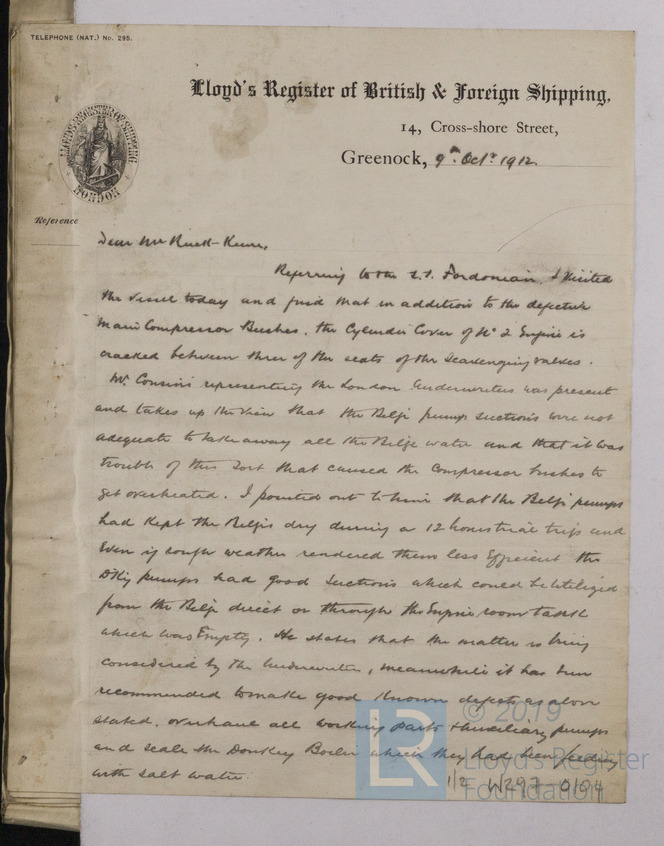 TELEPHONE (NAT.) No. 295.
Lloyd's Register of British & Foreign Shipping,
14, Cross-shore Street,
Greenock, 9th Octr 1912
LLOYD'S REGISTER OF SHIPPING
LONDON
Reference
Dear Mr Ruck-Keene,
Referring to the S.S. Fordonian, I visited
the vessel today and find that in addition to the defective
Main Compressor Bushes, the Cylinder Cover of No 2 Engine is
cracked between three of the seats of the Scavenging valves.
Mr. Cousins representing the London Underwriters was present
and takes up the view that the Bilge pump suctions were not
adequate to take away all the Bilge water and that it was
trouble of this sort that caused the Compressor bushes to
get overheated. I pointed out to him that the Bilge pumps
had kept the Bilges dry during a 12 hours trial trip and
even if rough weather rendered them less efficient the
Dky pumps had good suctions which could be utilized
from the Bilge direct or through the Engine room tank
which was Empty. He states that the matter is being
considered by the Underwriters, meanwhile it has been
recommended to make good known defects as above
stated, overhaul all working parts & auxiliary pumps
and scale the Donkey Boiler which they had been feeding
with salt water.
1/2 W297-0104
LR
© 2019
Lloyd's Register
Foundation